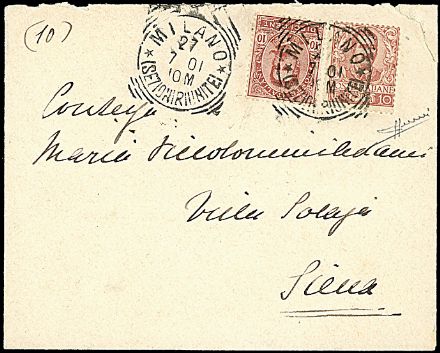 (10)
MILANO
27
7 01
10M
(SEZIONI RIUNITE)
MILANO
10
10
Contessa
Maria Piccolomini Adami
Villa Solaja
Siena